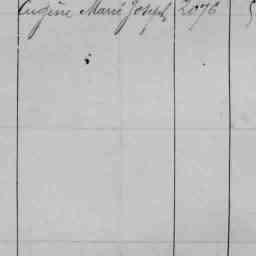 Eugène Marie Joseph 2076